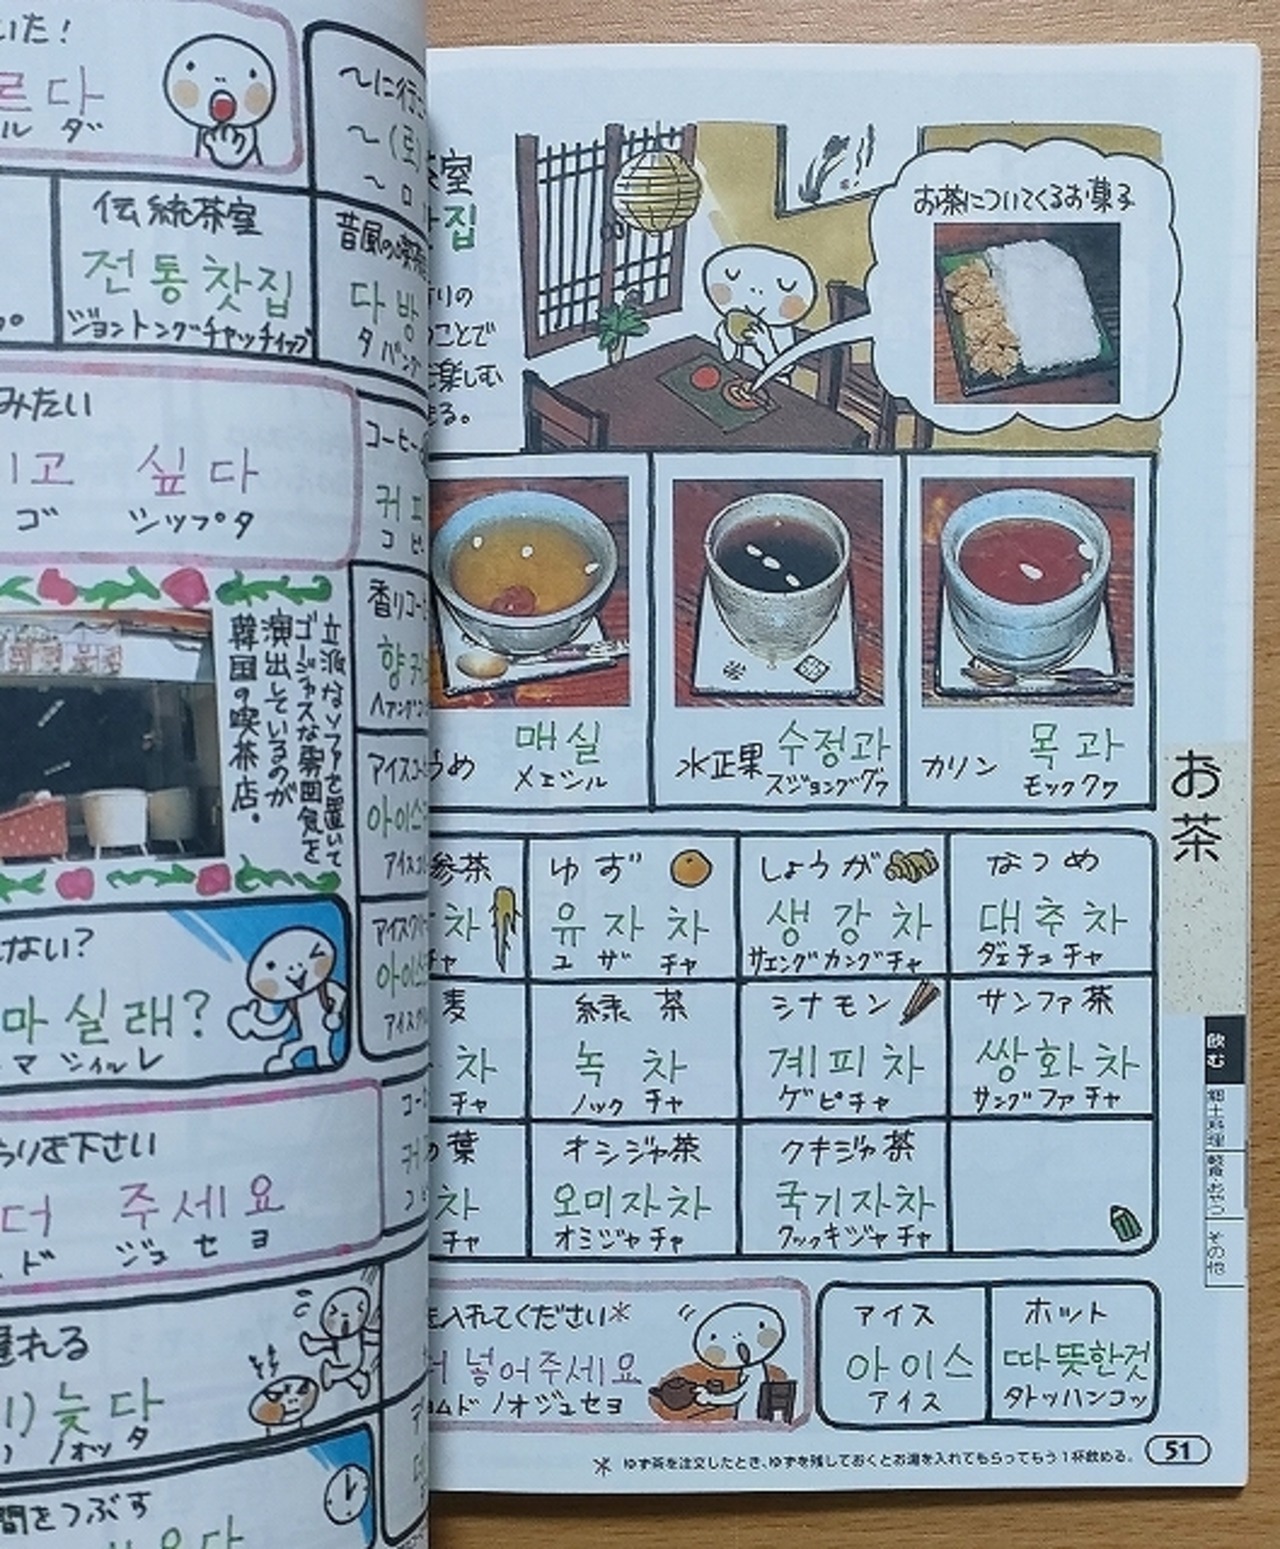 いた!
르다
ル ダ
〜に行こ
〜(로)
〜 ロ
伝統茶室
전통찻집
ジョントングチャッチィプ
昔風の喫茶
다방
タバング
みたい
고 싶다
ゴ シップタ
コーヒー
커피
コピ
香りコー
향커
ヘアングコ
立派なソファを置いて
ゴージャスな雰囲気を
演出しているのが
韓国の喫茶店。
アイスコー
아이스
アイスコ
アイスクリ
아이스
アイスクリ
ない?
마실래?
マ シィルレ
コー
커
コ
わりを下さい
더 주세요
ド ジュ セ ヨ
遅れる
늦다
ノォッ タ
間をつぶす
茶室
집
りの
ことで
楽しむ
る。
お茶についてくるお菓子
うめ
매실
メェシル
水正果
수정과
スジョングクァ
カリン
목과
モックヮ
参茶
차
チャ
ゆず
유자차
ユ ザ チャ
しょうが
생강차
サェング カング チャ
なつめ
대추차
ダェチュ チャ
麦
차
チャ
緑茶
녹차
ノック チャ
シナモン
계피차
ゲピチャ
サンファ茶
쌍화차
サング ファ チャ
の葉
차
チャ
オシジャ茶
오미자차
オミジャ チャ
クキジャ茶
국기자차
クックギジャ チャ
を入れてください*
더 넣어주세요
ムド ノオジュセヨ
アイス
아이스
アイス
ホット
따뜻한것
タトッハンコッ
お茶
飲む
郷土料理
軽食・おやつ
その他
* ゆず茶を注文したとき、ゆずを残しておくとお湯を入れてもらってもう1杯飲める。
51